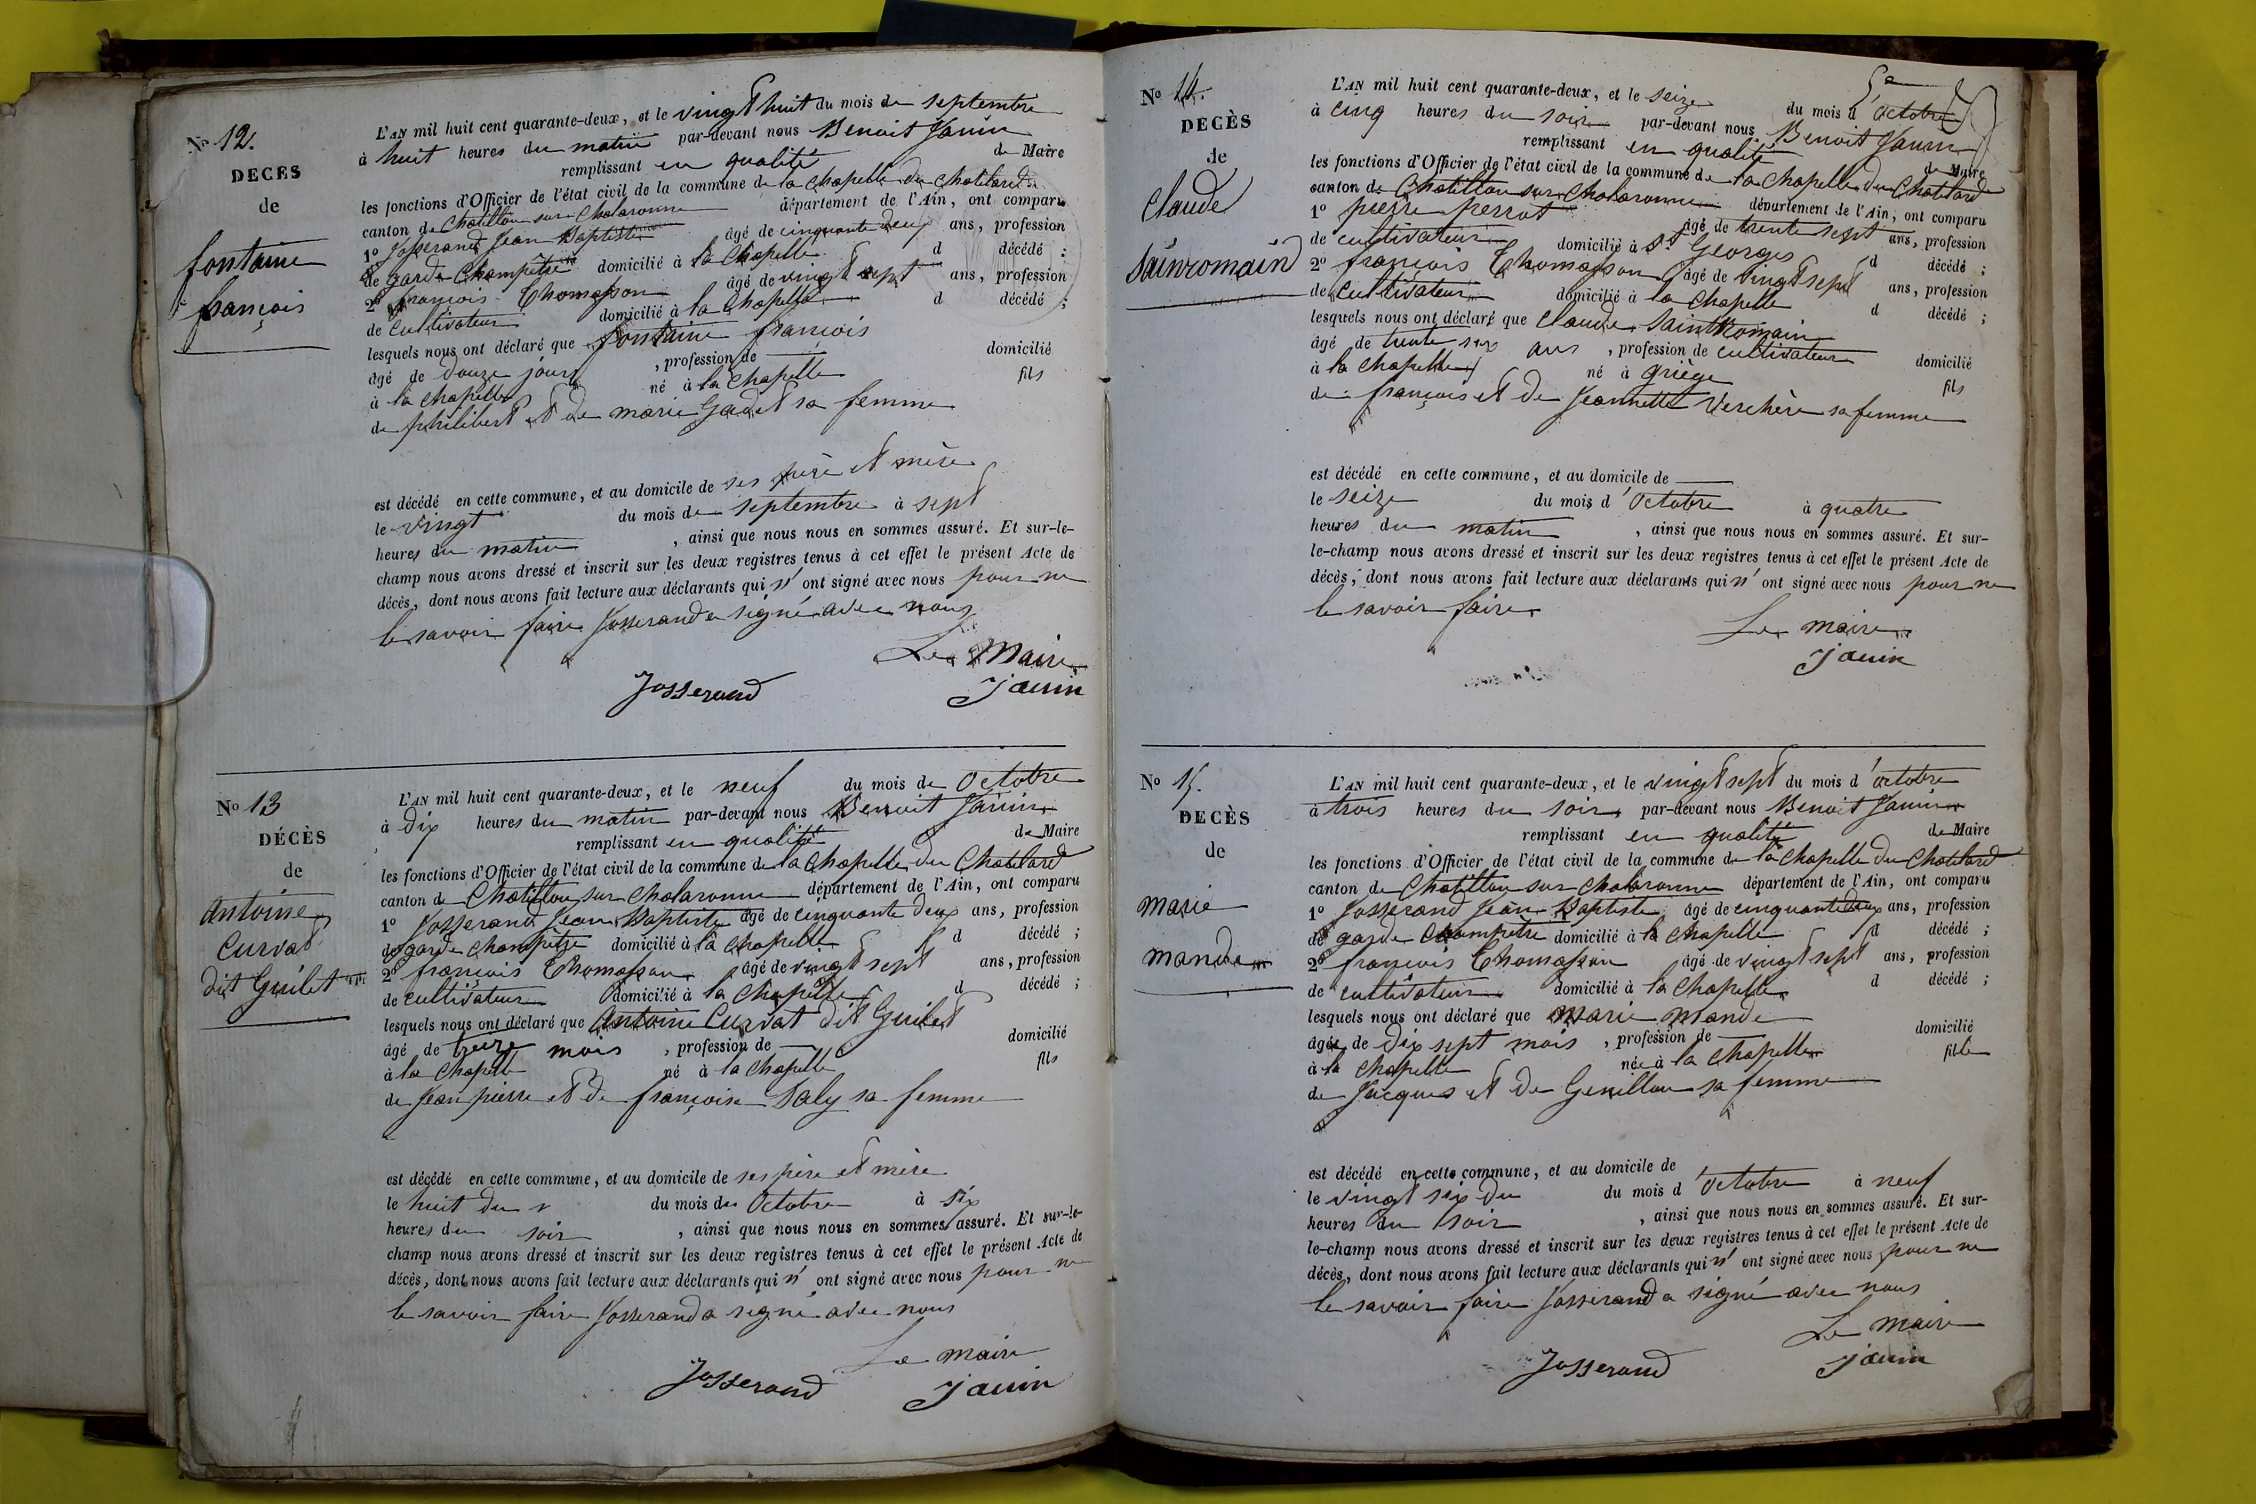 No 12.
DECES
de
fontaine
françois
L'AN mil huit cent quarante-deux, et le vingt huit du mois de septembre
à huit heures du matin par-devant nous Benoit Janin
remplissant en qualité de Maire
les fonctions d'Officier de l'état civil de la commune de la Chapelle du Chatelard
canton de Chatillon sur Chalaronne département de l'Ain, ont comparu
1o Josserand Jean Baptiste âgé de cinquante deux ans, profession
de garde Champêtre domicilié à la Chapelle d décédé ;
2o françois Thomasson âgé de vingt sept ans, profession
de Cultivateur domicilié à la Chapelle d décédé ;
lesquels nous ont déclaré que fontaine françois
âgé de douze jours , profession de — domicilié
à la Chapelle né à la Chapelle fils
de philibert et de marie Gadet sa femme
est décédé en cette commune, et au domicile de ses père et mère
le vingt du mois de septembre à sept
heures du matin , ainsi que nous nous en sommes assuré. Et sur-le-
champ nous avons dressé et inscrit sur les deux registres tenus à cet effet le présent Acte de
décès, dont nous avons fait lecture aux déclarants qui n' ont signé avec nous pour ne
le savoir faire Josserand a signé avec nous
Le Maire
Josserand Janin
No 13
DÉCÈS
de
Antoine
Curvat
dit Guilet
L'AN mil huit cent quarante-deux, et le neuf du mois de Octobre
à dix heures du matin par-devant nous Benoit Janin
remplissant en qualité de Maire
les fonctions d'Officier de l'état civil de la commune de la Chapelle du Chatelard
canton de Chatillon sur Chalaronne département de l'Ain, ont comparu
1o Josserand Jean Baptiste âgé de cinquante deux ans, profession
de garde Champêtre domicilié à la Chapelle d décédé ;
2o françois Thomasson âgé de vingt sept ans, profession
de cultivateur domicilié à la Chapelle d décédé ;
lesquels nous ont déclaré que Antoine Curvat dit Guilet
âgé de treize mois , profession de — domicilié
à la Chapelle né à la Chapelle fils
de Jean pierre et de françoise Saly sa femme
est décédé en cette commune, et au domicile de ses père et mère
le huit du du mois de Octobre à six
heures du soir , ainsi que nous nous en sommes assuré. Et sur-le-
champ nous avons dressé et inscrit sur les deux registres tenus à cet effet le présent Acte de
décès, dont nous avons fait lecture aux déclarants qui n' ont signé avec nous pour ne
le savoir faire Josserand a signé avec nous
Le maire
Josserand Janin
No 14.
DECÈS
de
Claude
Sainromain
L'AN mil huit cent quarante-deux, et le seize du mois d'Octobre
à cinq heures du soir par-devant nous Benoit Janin
remplissant en qualité de Maire
les fonctions d'Officier de l'état civil de la commune de la Chapelle du Chatelard
canton de Chatillon sur Chalaronne département de l'Ain, ont comparu
1o pierre perrat âgé de trente sept ans, profession
de cultivateur domicilié à St Georges d décédé ;
2o françois Thomasson âgé de vingt sept ans, profession
de Cultivateur domicilié à la Chapelle d décédé ;
lesquels nous ont déclaré que Claude Saintromain
âgé de trente six ans , profession de cultivateur domicilié
à la Chapelle né à Griège fils
de françois et de Jeannette Verchère sa femme
est décédé en cette commune, et au domicile de —
le seize du mois d'Octobre à quatre
heures du matin , ainsi que nous nous en sommes assuré. Et sur-
le-champ nous avons dressé et inscrit sur les deux registres tenus à cet effet le présent Acte de
décès, dont nous avons fait lecture aux déclarants qui n' ont signé avec nous pour ne
le savoir faire
Le maire
Janin
No 15.
DECÈS
de
Marie
Mande
L'AN mil huit cent quarante-deux, et le vingt sept du mois d'octobre
à trois heures du soir par-devant nous Benoit Janin
remplissant en qualité de Maire
les fonctions d'Officier de l'état civil de la commune de la Chapelle du Chatelard
canton de Chatillon sur Chalaronne département de l'Ain, ont comparu
1o Josserand Jean Baptiste âgé de cinquante deux ans, profession
de garde Champêtre domicilié à la Chapelle d décédé ;
2o françois Thomasson âgé de vingt sept ans, profession
de cultivateur domicilié à la Chapelle d décédé ;
lesquels nous ont déclaré que Marie Mande
âgée de dix sept mois , profession de — domicilié
à la Chapelle née à la Chapelle fille
de Jacques et de Genillon sa femme
est décédé en cette commune, et au domicile de
le vingt six du du mois d'octobre à neuf
heures du soir , ainsi que nous nous en sommes assuré. Et sur-
le-champ nous avons dressé et inscrit sur les deux registres tenus à cet effet le présent Acte de
décès, dont nous avons fait lecture aux déclarants qui n' ont signé avec nous pour ne
le savoir faire Josserand a signé avec nous
Le maire
Josserand Janin